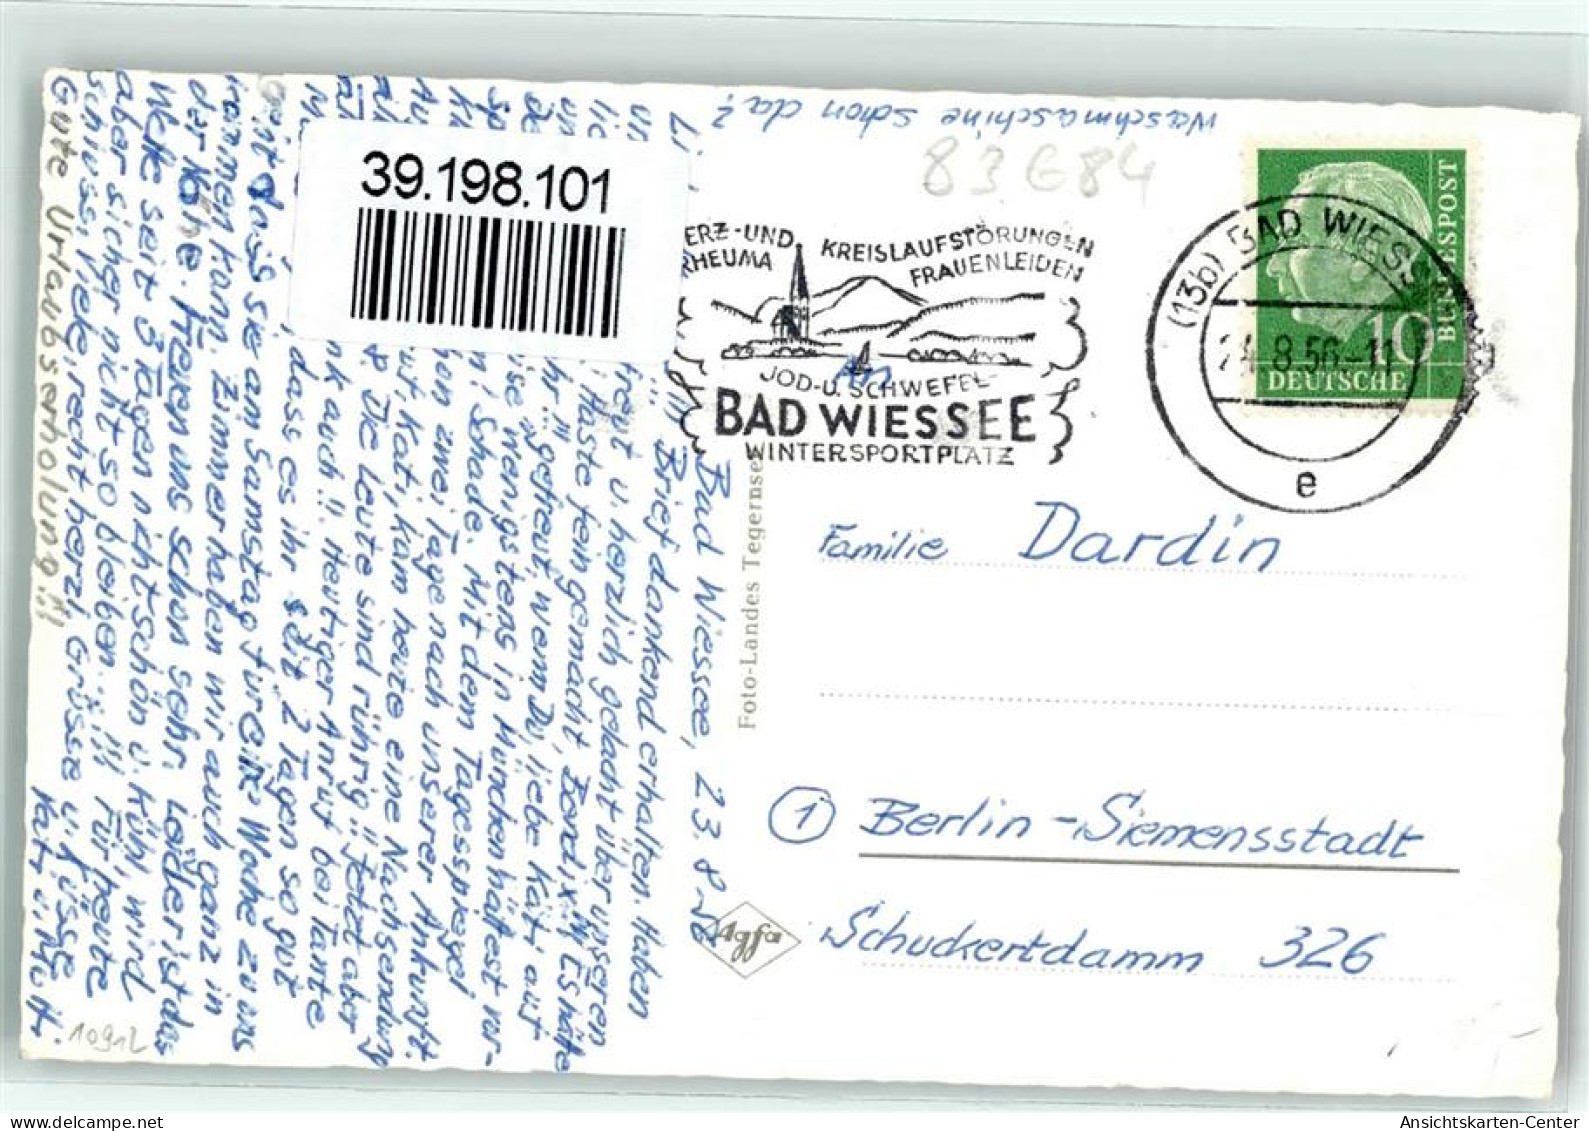 Waschmaschine schon da?
83684
39.198.101
ERZ-UND
RHEUMA
KREISLAUFSTÖRUNGEN
FRAUENLEIDEN
JOD-U. SCHWEFEL-
BAD WIESSEE
WINTERSPORTPLATZ
(13b) BAD WIESSEE
24.8.56-11
e
10
DEUTSCHE
BUNDESPOST
An
Familie Dardin
① Berlin-Siemensstadt
Schuckertdamm 326
Foto-Landes Tegernsee
Agfa
Bad Wiessee, 23.8.56
Li
!!! Brief dankend erhalten. Haben
un
freut u. herzlich gelacht über unseren
lie
Haste fein gemacht, Bendix!!! Es hätte
un
hr!!! gefreut, wenn Du, liebe Kati aus
de
ise wenigstens in München hättest vor-
sp
n! Schade. Mit dem Tagesspiegel
hon zwei Tage nach unserer Ankunft.
Au
ut, Kati, kam heute eine Nachsendung
Die Leute sind rührig!! Jetzt aber
nk auch!! Heutiger Anruf bei Tante
M
, dass es ihr seit 2 Tagen so gut
geht, dass sie am Samstag für eine Woche zu uns
kommen kann. Zimmer haben wir auch ganz in
der Nähe. Freuen uns schon sehr. Leider ist das
Wetter seit 3 Tagen nicht schön u. kühl, wird
aber sicher nicht so bleiben. !!! Für heute
Schluss, viele, recht herzl. Grüsse u. Küsse
Gute Urlaubserholung!!!
Vati u. Mutti.
10912
AnsichtsKarten-Center